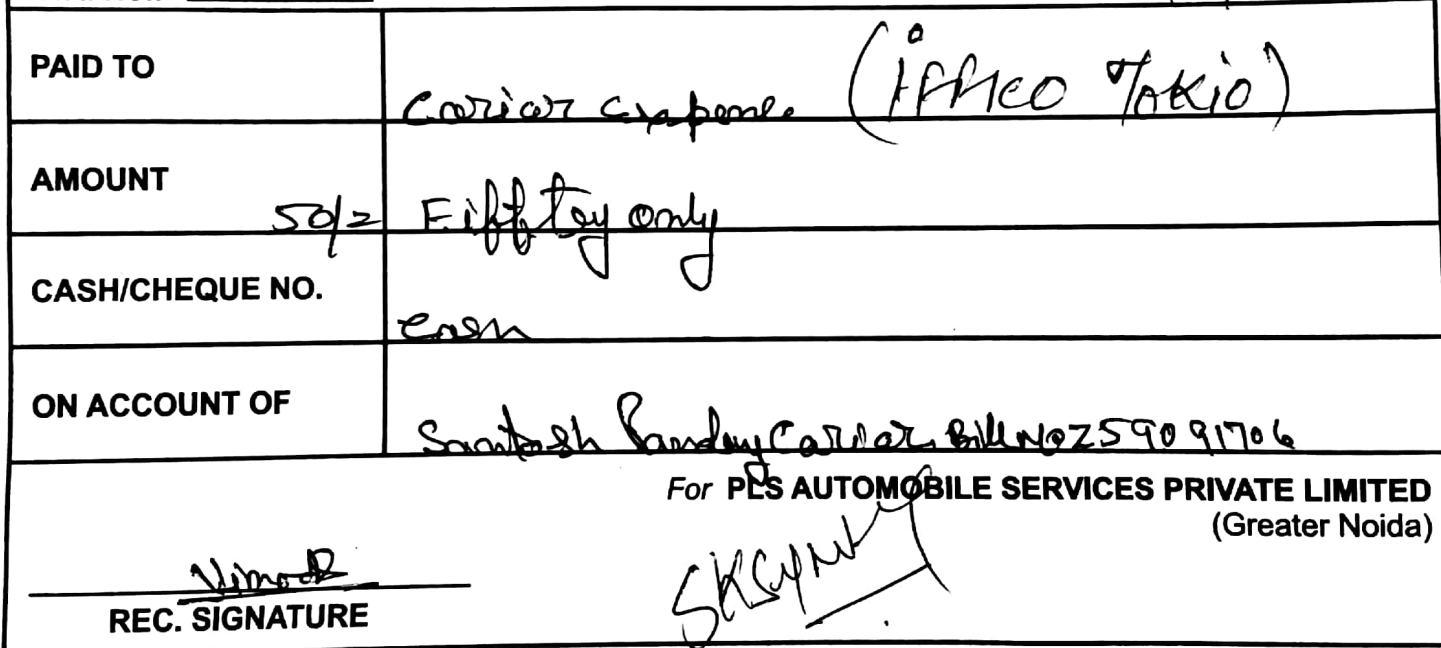 PAID TO Cariar Expense (iffico Tokio)
AMOUNT 50/= Fiffty only
CASH/CHEQUE NO. Cash
ON ACCOUNT OF Santosh Panday Cariar Bill No Z59091706
For PLS AUTOMOBILE SERVICES PRIVATE LIMITED
(Greater Noida)
Vinod
REC. SIGNATURE